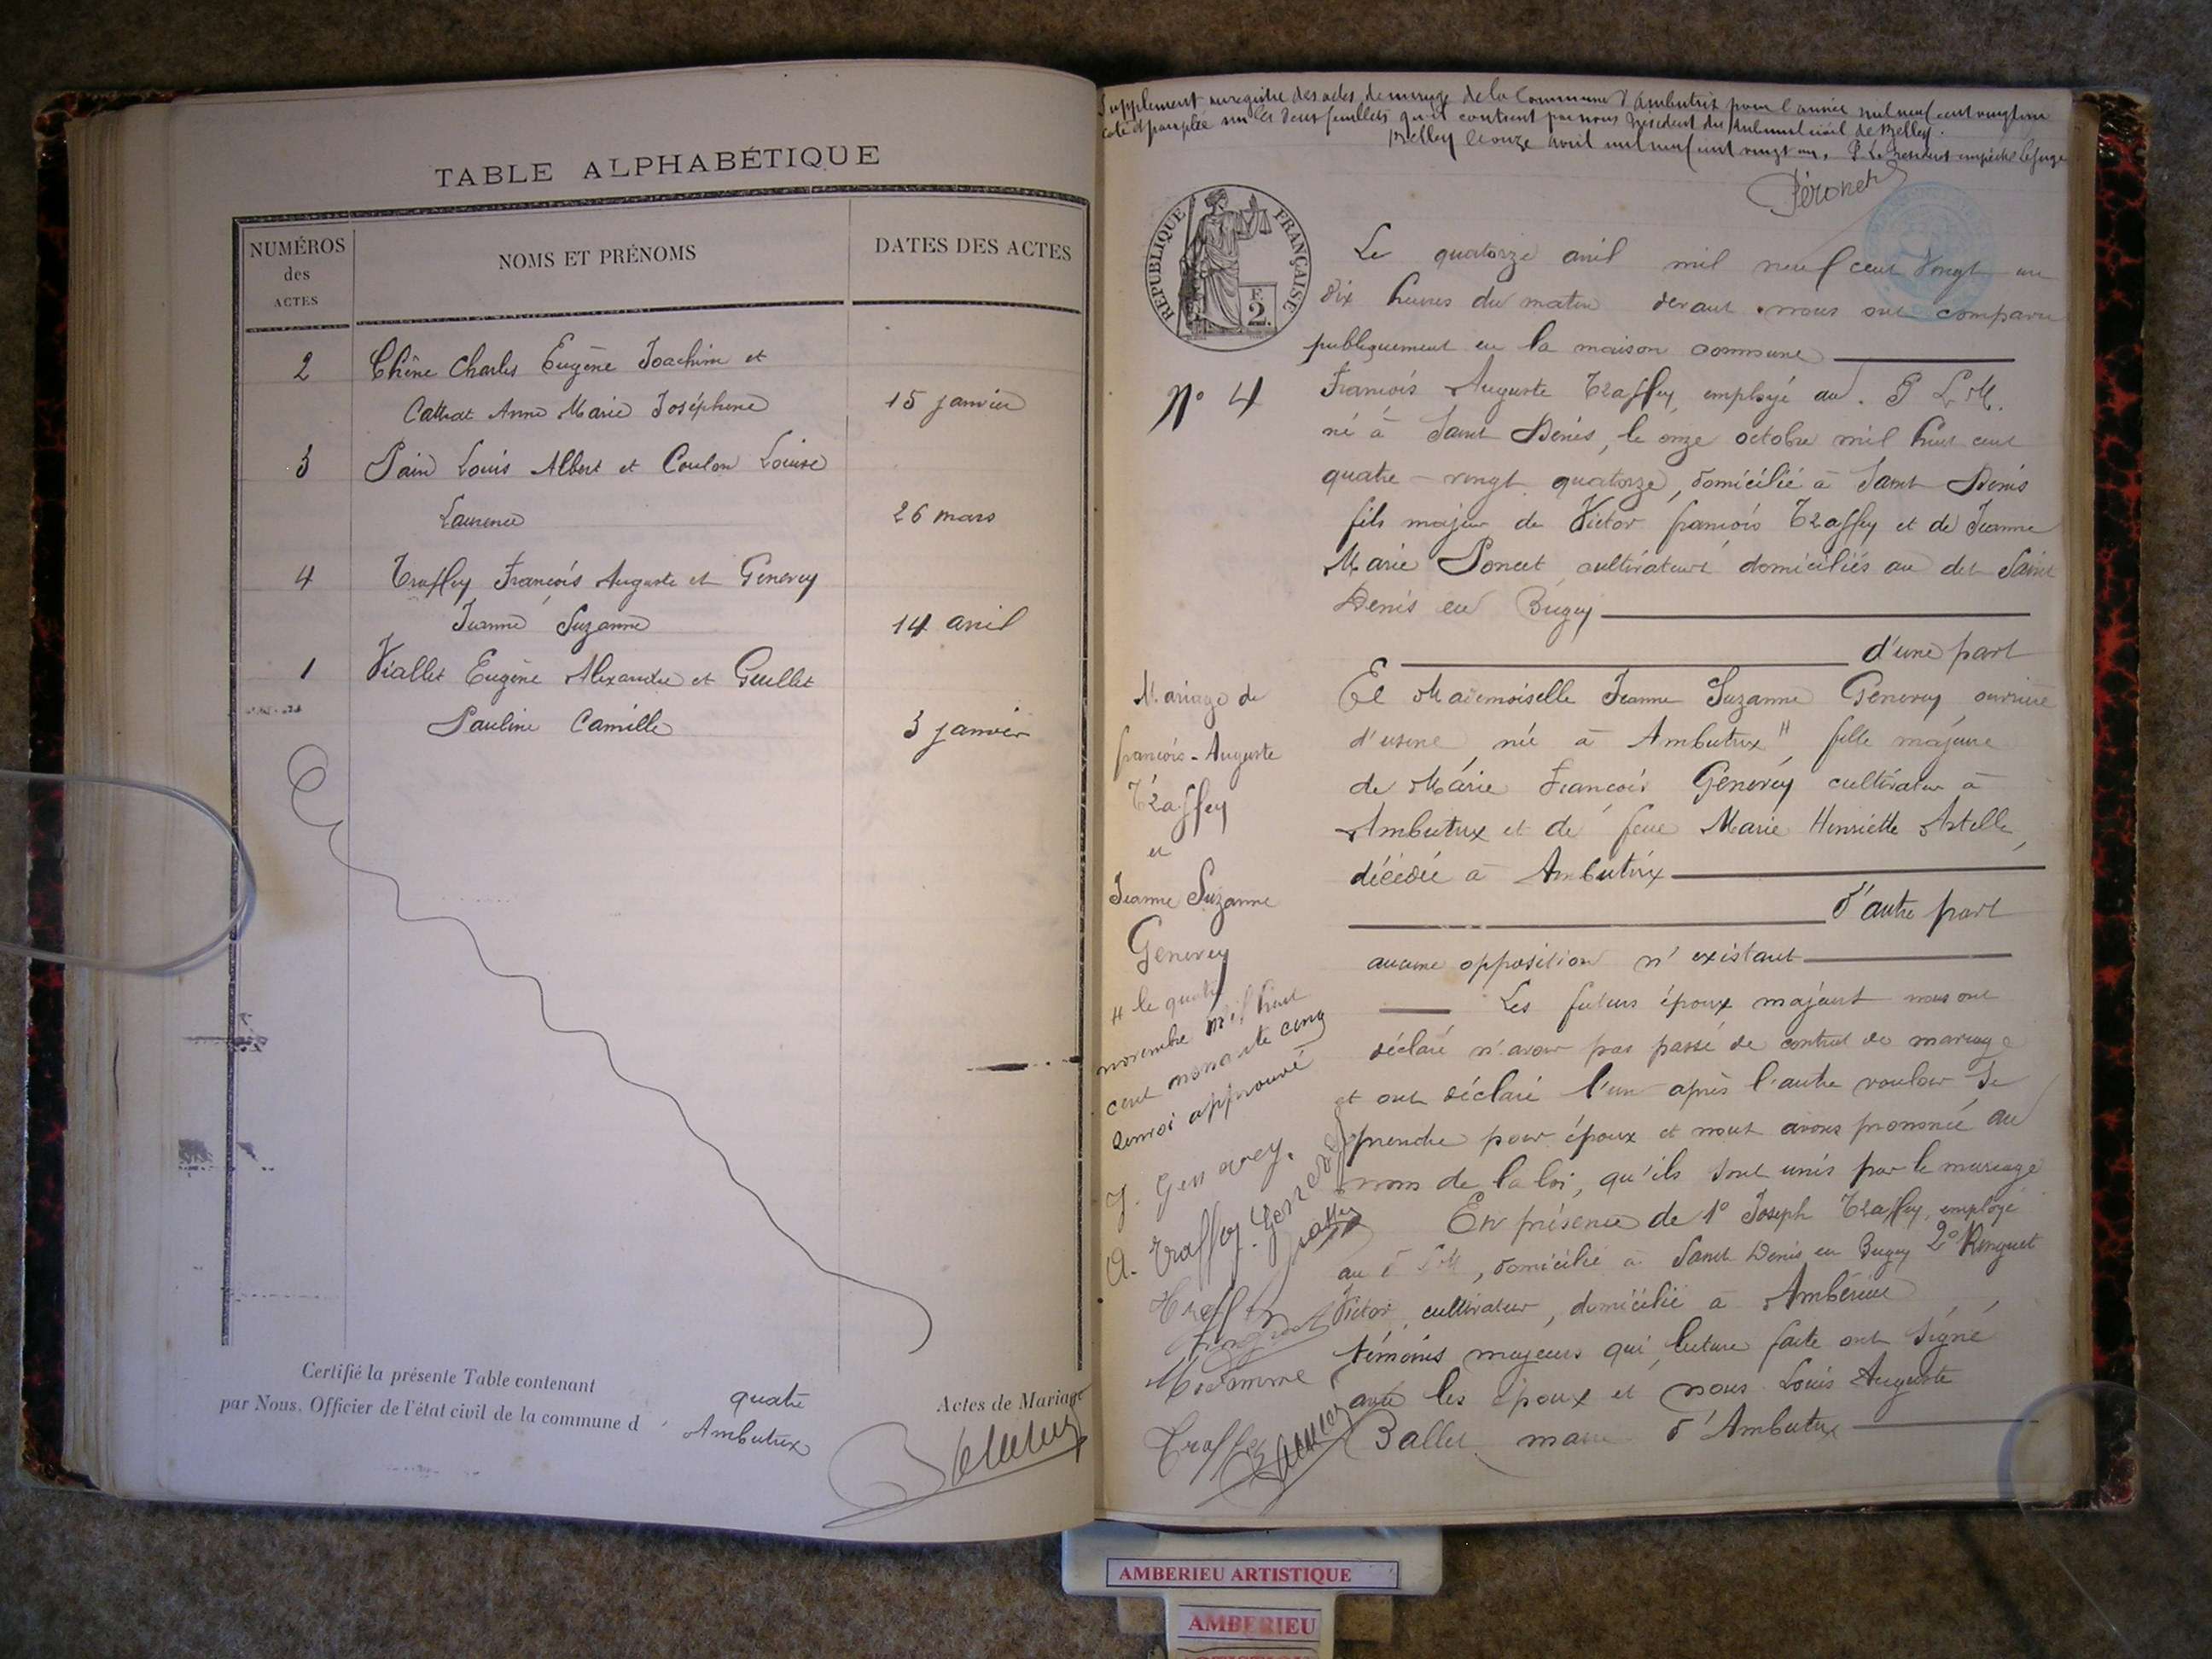 TABLE ALPHABÉTIQUE
NUMÉROS
des
ACTES
NOMS ET PRÉNOMS
DATES DES ACTES
2 Chêne Charles Eugène Joachim et
Cattrat Anne Marie Joséphine 15 janvier
3 Pain Louis Albert et Coulon Louise
Laurence 26 mars
4 Traffey François Auguste et Generey
Jeanne Suzanne 14 avril
1 Viallet Eugène Alexandre et Guillet
Pauline Camille 3 janvier
Certifié la présente Table contenant quatre Actes de Mariage
par Nous, Officier de l'état civil de la commune d' Ambutrix
Supplement au registre des actes de mariage de la Commune d'Ambutrix pour l'année mil neuf cent vingt un
coté et paraphé sur les deux feuillets qu'il contient par nous Président du tribunal civil de Belley.
Belley le onze avril mil neuf cent vingt un. P. Le Président empêché Le Juge
Péronet
RÉPUBLIQUE FRANÇAISE
F.
2.
Le quatorze avril mil neuf cent vingt un
dix heures du matin devant nous ont comparu
publiquement en la maison commune
No 4
François Auguste Traffey, employé au P L M.
né à Saint Denis, le onze octobre mil huit cent
quatre-vingt quatorze, domicilié à Saint Denis
fils majeur de Victor françois Traffey et de Jeanne
Marie Poncet cultivateurs domiciliés au dit Saint
Denis en Bugey
d'une part
Mariage de
françois-Auguste
Traffey
et
Jeanne Suzanne
Generey
Et Mademoiselle Jeanne Suzanne Generey, ouvrière
d'usine, née à Ambutrix // fille majeure
de Marie François Generey cultivateur à
Ambutrix et de feue Marie Henriette Astelle,
décédée à Ambutrix
d'autre part
aucune opposition n'existant
// le quatre
novembre mil huit
cent nonante cinq
renvoi approuvé
Les futurs époux majeurs nous ont
déclaré n'avoir pas passé de contrat de mariage
et ont déclaré l'un après l'autre vouloir se
prendre pour époux et nous avons prononcé au
nom de la loi, qu'ils sont unis par le mariage
En présence de 1° Joseph Traffey, employé
au P L M, domicilié à Saint Denis en Bugey 2° Ringuet
Victor, cultivateur, domicilié à Ambérieu
témoins majeurs qui lecture faite ont signé
avec les époux et nous Louis Auguste
Ballet maire d'Ambutrix
J. Generey.
A. Traffey
Traffey
AMBERIEU ARTISTIQUE
AMBERIEU
ARTISTIQUE